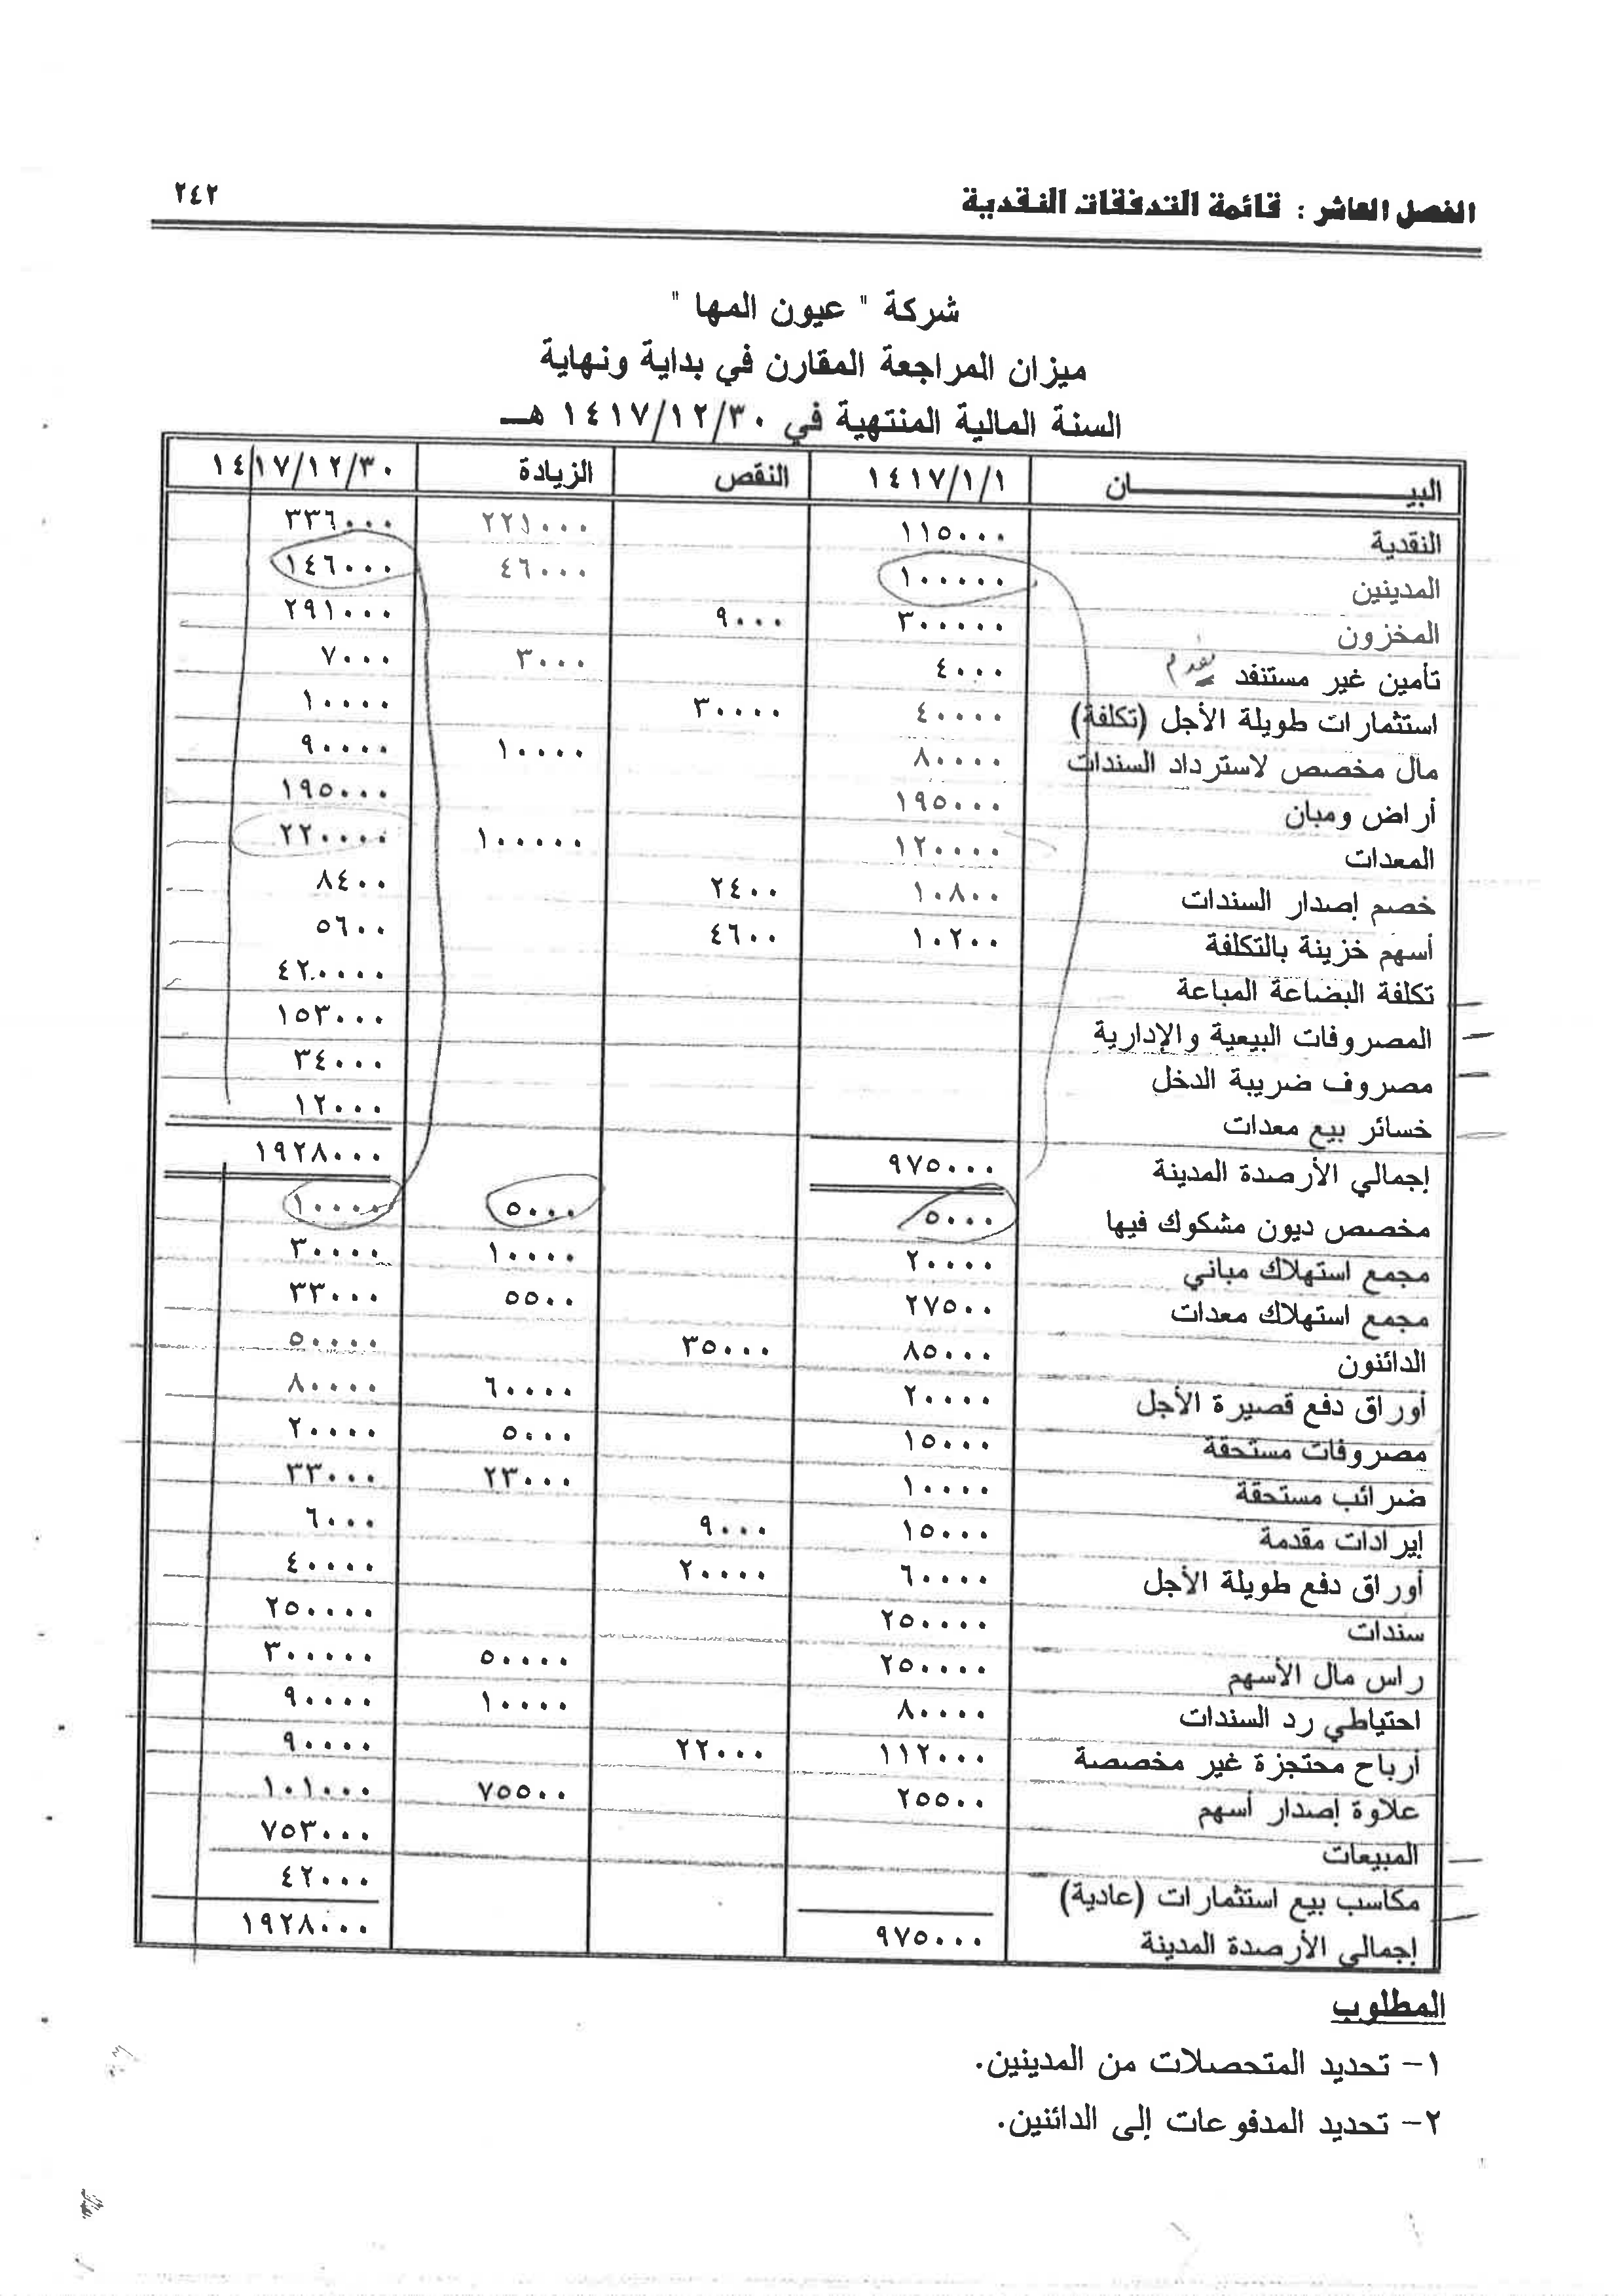 الفصل العاشر : قائمة التدفقات النقدية ٢٤٢
شركة " عيون المها "
ميزان المراجعة المقارن في بداية ونهاية
السنة المالية المنتهية في ١٤١٧/١٢/٣٠ هـ
البيـــــــان ١٤١٧/١/١ النقص الزيادة ١٤١٧/١٢/٣٠
النقدية ١١٥٠٠٠ ٢٢١٠٠٠ ٣٣٦٠٠٠
المدينين ١٠٠٠٠٠ ٤٦٠٠٠ ١٤٦٠٠٠
المخزون ٣٠٠٠٠٠ ٩٠٠٠ ٢٩١٠٠٠
تأمين غير مستنفد ٤٠٠٠ ٣٠٠٠ ٧٠٠٠
استثمارات طويلة الأجل (تكلفة) ٤٠٠٠٠ ٣٠٠٠٠ ١٠٠٠٠
مال مخصص لاسترداد السندات ٨٠٠٠٠ ١٠٠٠٠ ٩٠٠٠٠
أراض ومبان ١٩٥٠٠٠ ١٩٥٠٠٠
المعدات ١٢٠٠٠٠ ١٠٠٠٠٠ ٢٢٠٠٠٠
خصم إصدار السندات ١٠٨٠٠ ٢٤٠٠ ٨٤٠٠
أسهم خزينة بالتكلفة ١٠٢٠٠ ٤٦٠٠ ٥٦٠٠
تكلفة البضاعة المباعة ٤٢٠٠٠٠
المصروفات البيعية والإدارية ١٥٣٠٠٠
مصروف ضريبة الدخل ٣٤٠٠٠
خسائر بيع معدات ١٢٠٠٠
إجمالي الأرصدة المدينة ٩٧٥٠٠٠ ١٩٢٨٠٠٠
مخصص ديون مشكوك فيها ٥٠٠٠ ٥٠٠٠ ١٠٠٠٠
مجمع استهلاك مباني ٢٠٠٠٠ ١٠٠٠٠ ٣٠٠٠٠
مجمع استهلاك معدات ٢٧٥٠٠ ٥٥٠٠ ٣٣٠٠٠
الدائنون ٨٥٠٠٠ ٣٥٠٠٠ ٥٠٠٠٠
أوراق دفع قصيرة الأجل ٢٠٠٠٠ ٦٠٠٠٠ ٨٠٠٠٠
مصروفات مستحقة ١٥٠٠٠ ٥٠٠٠ ٢٠٠٠٠
ضرائب مستحقة ١٠٠٠٠ ٢٣٠٠٠ ٣٣٠٠٠
إيرادات مقدمة ١٥٠٠٠ ٩٠٠٠ ٦٠٠٠
أوراق دفع طويلة الأجل ٦٠٠٠٠ ٢٠٠٠٠ ٤٠٠٠٠
سندات ٢٥٠٠٠٠ ٢٥٠٠٠٠
راس مال الأسهم ٢٥٠٠٠٠ ٥٠٠٠٠ ٣٠٠٠٠٠
احتياطي رد السندات ٨٠٠٠٠ ١٠٠٠٠ ٩٠٠٠٠
أرباح محتجزة غير مخصصة ١١٢٠٠٠ ٢٢٠٠٠ ٩٠٠٠٠
علاوة إصدار أسهم ٢٥٥٠٠ ٧٥٥٠٠ ١٠١٠٠٠
المبيعات ٧٥٣٠٠٠
مكاسب بيع استثمارات (عادية) ٤٢٠٠٠
إجمالي الأرصدة المدينة ٩٧٥٠٠٠ ١٩٢٨٠٠٠
المطلوب
١- تحديد المتحصلات من المدينين.
٢- تحديد المدفوعات إلى الدائنين.